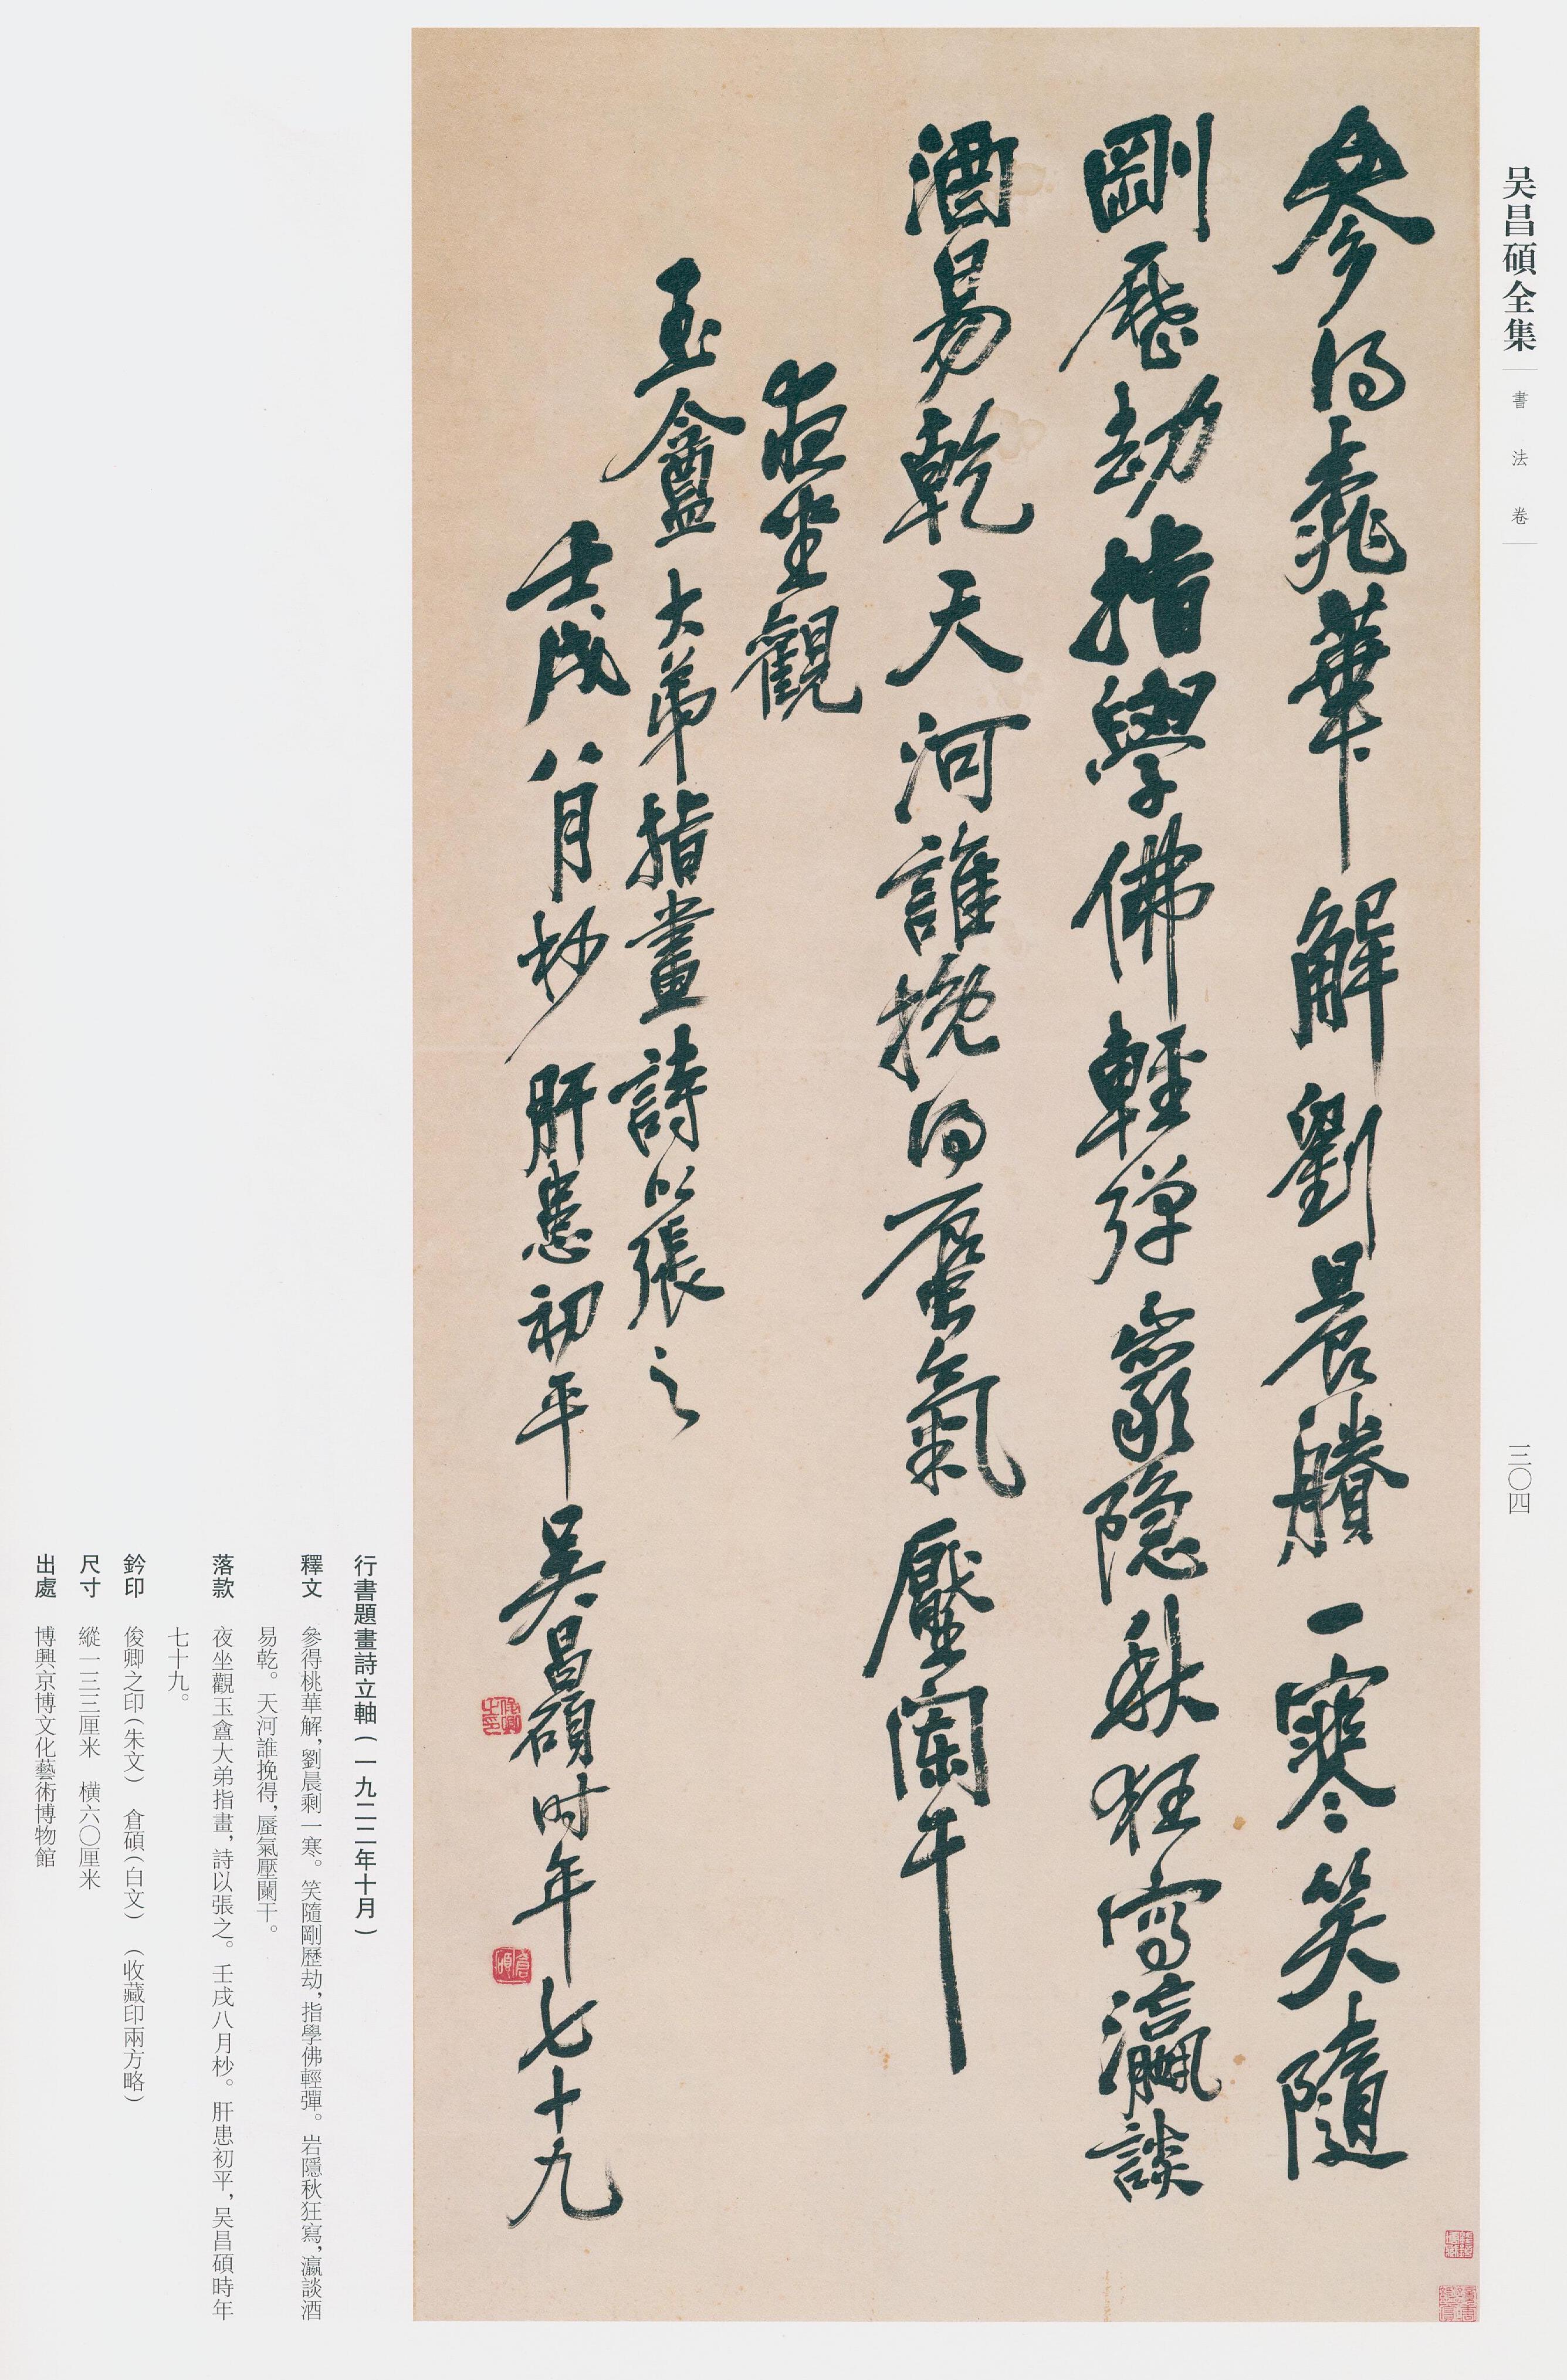 吴昌碩全集
書法卷
三〇四
參得桃華解劉晨賸一寒笑隨
剛歷劫指學佛輕彈隱秋狂寫瀛談
酒易乾天河誰挽得蜃氣壓闌干
夜坐觀
玉盦大弟指畫詩以張之
壬戌八月杪肝患初平吳昌碩时年七十九
俊卿之印
倉碩
行書題畫詩立軸(一九二二年十月)
釋文 參得桃華解,劉晨剩一寒。笑隨剛歷劫,指學佛輕彈。岩隱秋狂寫,瀛談酒
易乾。天河誰挽得,蜃氣壓闌干。
落款 夜坐觀玉盦大弟指畫,詩以張之。壬戌八月杪。肝患初平,吴昌碩時年
七十九。
鈐印 俊卿之印(朱文) 倉碩(白文) (收藏印兩方略)
尺寸 縱一三三厘米 橫六〇厘米
出處 博興京博文化藝術博物館